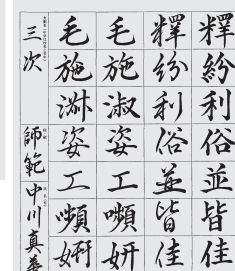 釋紛利俗並皆佳
釋紛利俗並皆佳
毛施淑姿工嚬妍
毛施淑姿工嚬妍
三次
師範
中川真